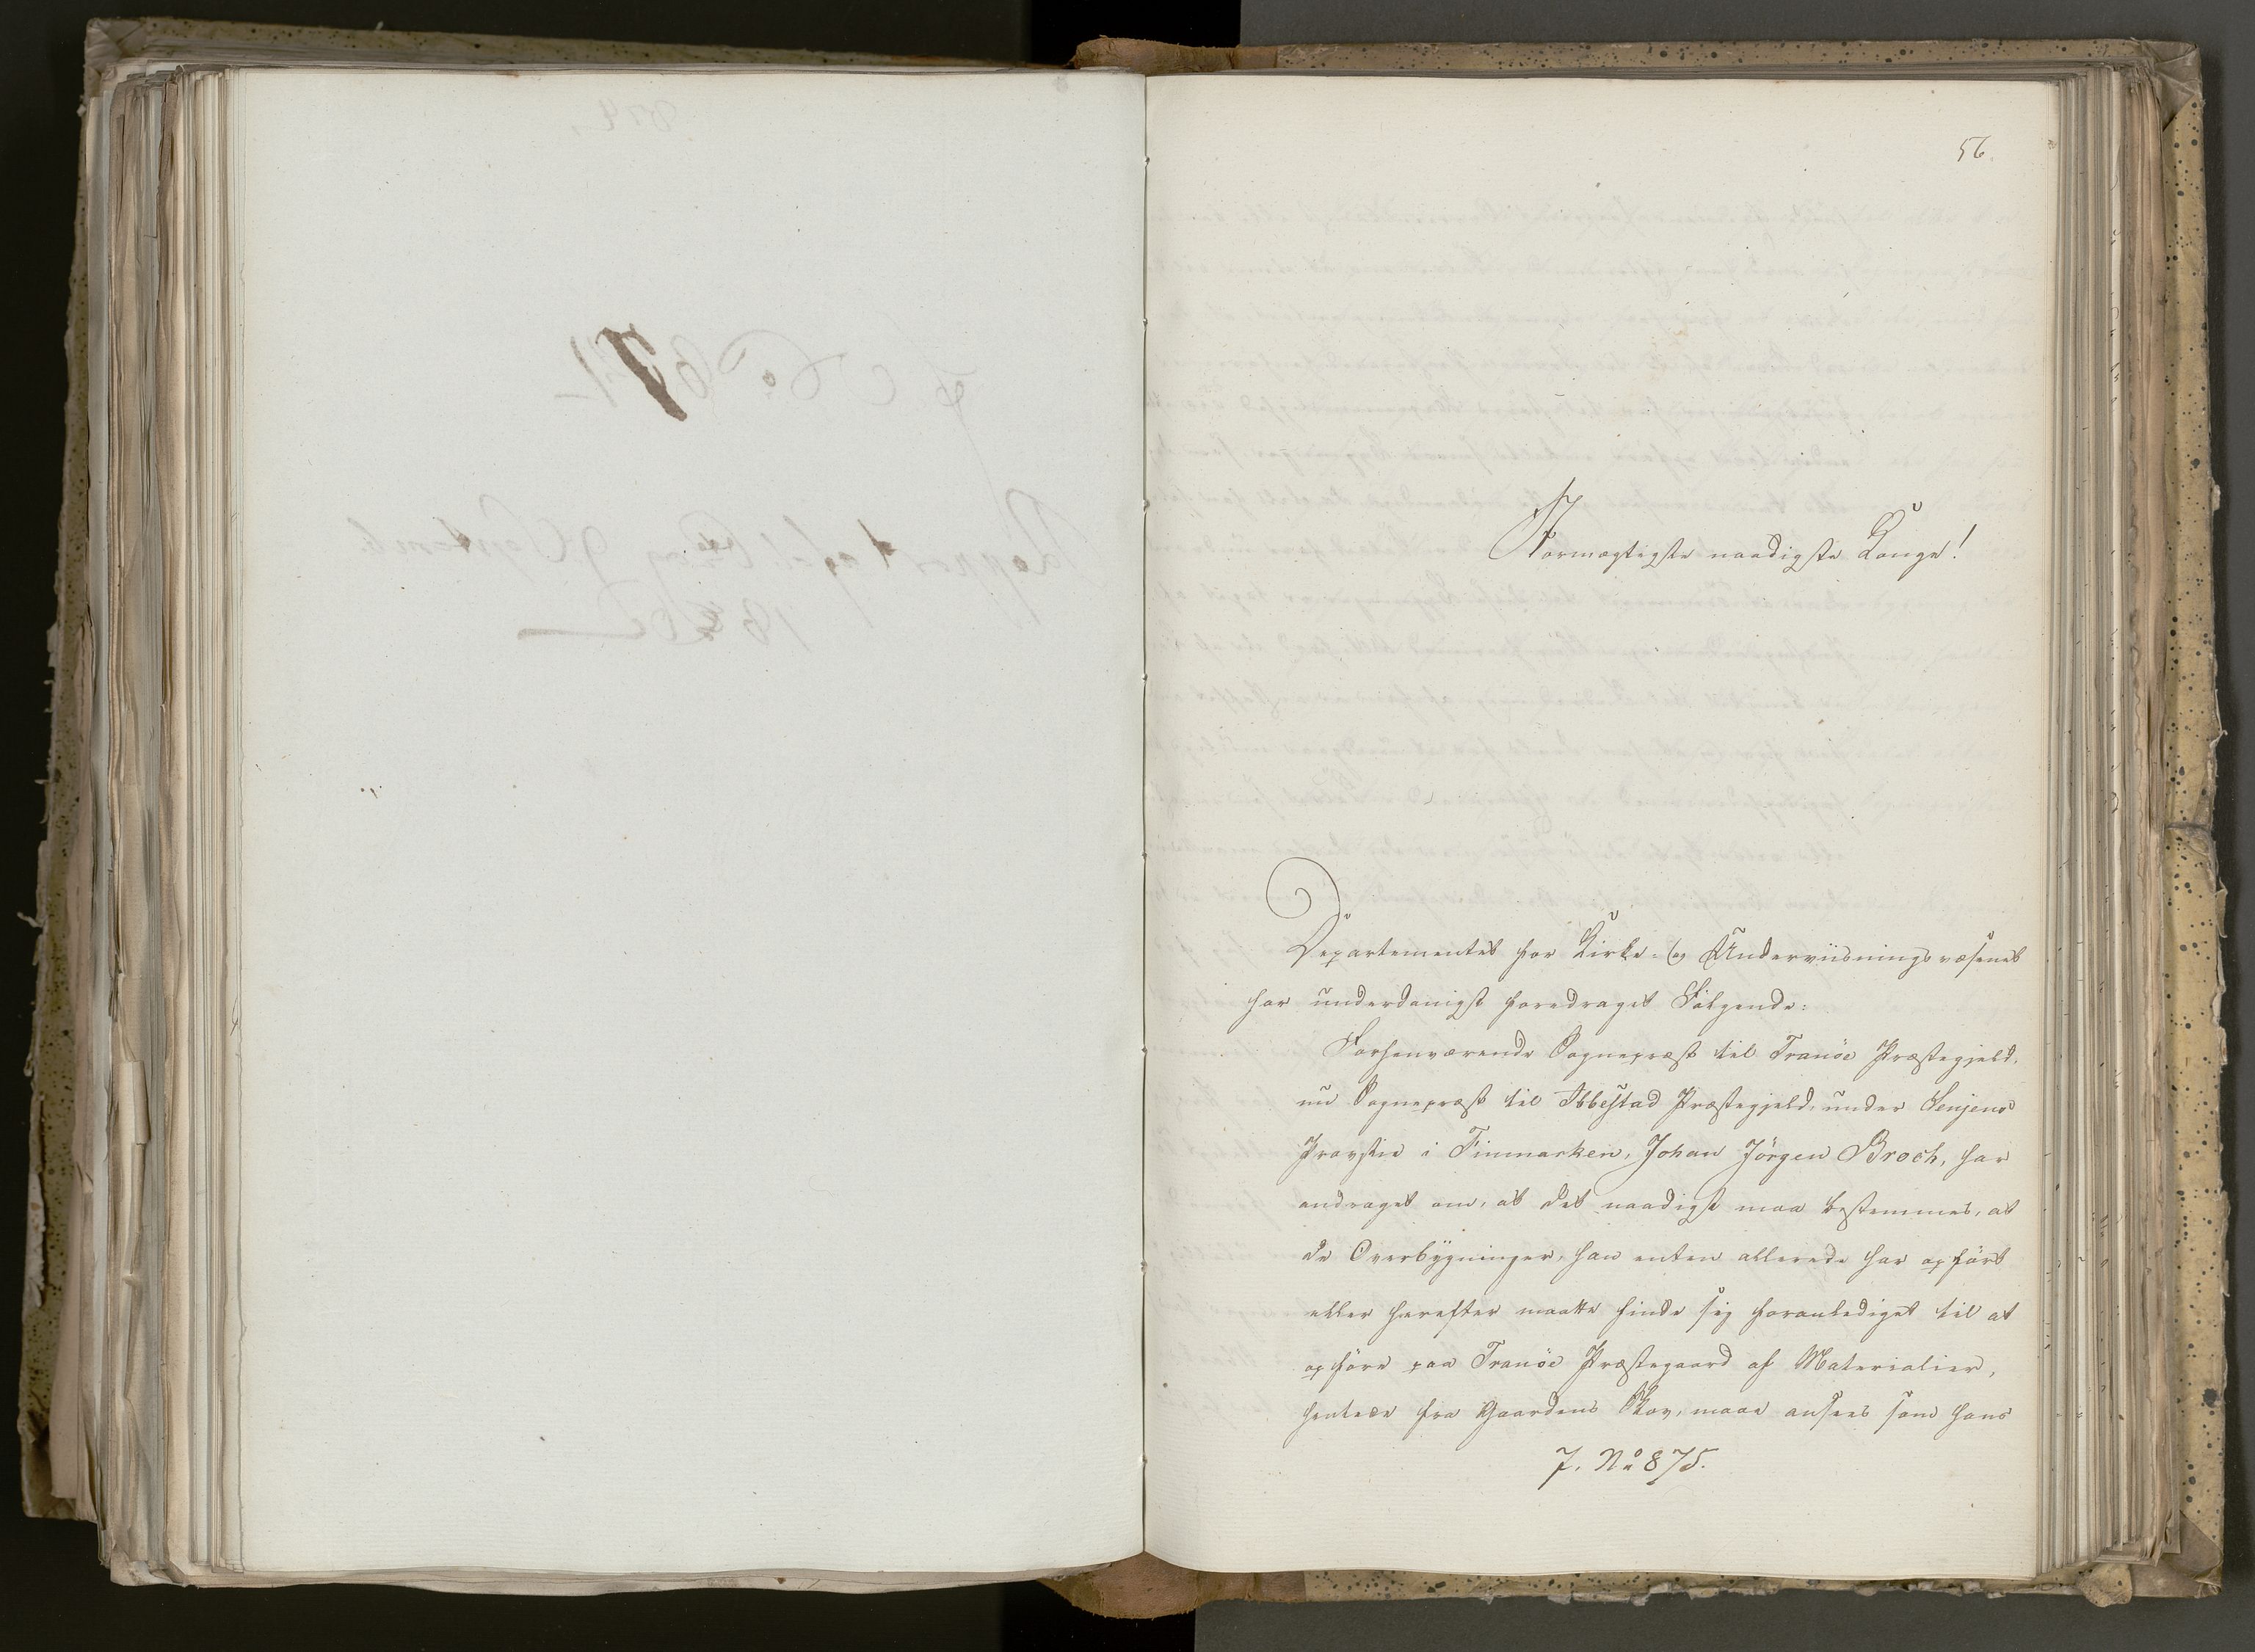 56.
Stormægtigste naadigste Konge!
Departementet for Kirke- og Underviisningsvæsenet
har underdanigst foredraget Følgende:
Forhenværende Sognepræst til Tranöe Præstegjeld,
nu Sognepræst til Ibbestad Præstegjeld, under Senjens
Provstie i Finmarken, Johan Jörgen Broch, har
andraget om, at det naadigst maa bestemmes, at
de Overbygninger, han enten allerede har opfört
eller herefter maatte finde sig foranlediget til at
opföre paa Tranöe Præstegaard af Materialier,
hentede fra Gaardens Skov, maae ansees som hans
J. No 875.